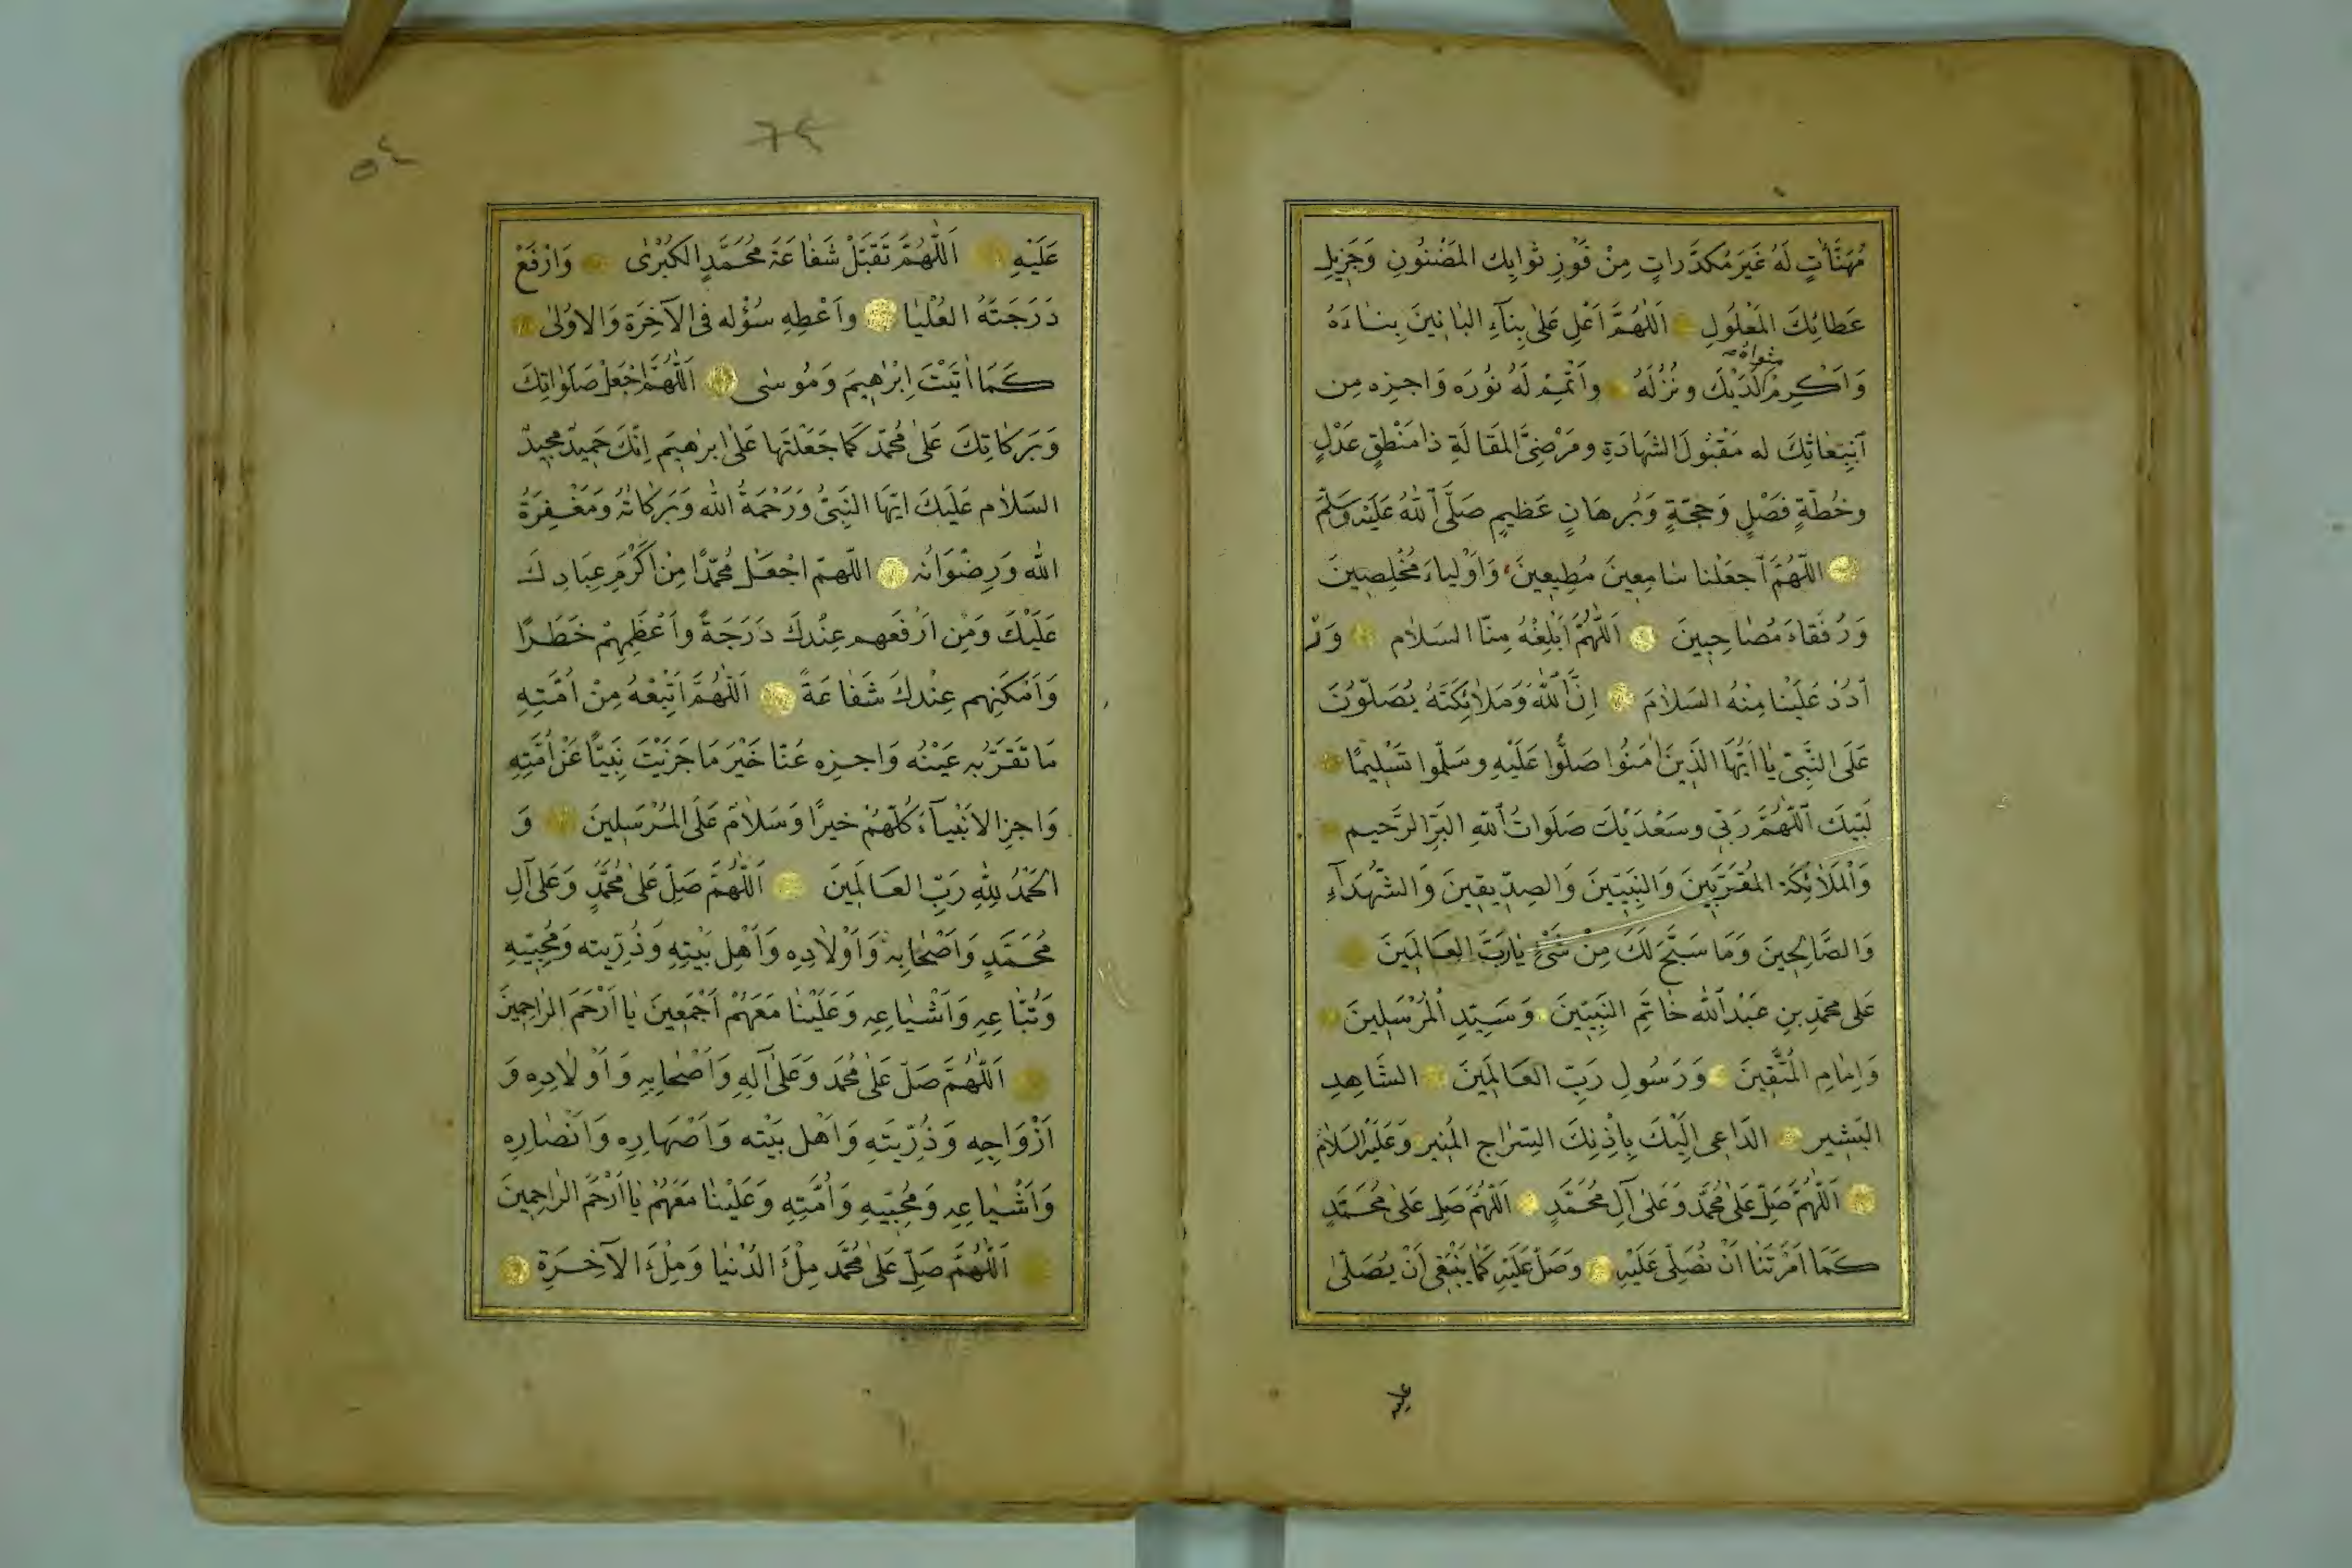 مُهَنَّأٰتٍ لَهُ غَيْرَ مُكَدَّرَاتٍ مِنْ فَوْزِ ثَوَابِكَ المَضْنُونِ وَجَزِيلِ
عَطَائِكَ المَعْلُولِ اَللّٰهُمَّ اَعْلِ عَلٰى بِنَآءِ البَانِينَ بِنَاءَهُ
مثواه
وَاَكْرِمْ لَدَيْكَ وَنُزُلَهُ وَاَتْمِمْ لَهُ نُورَهُ وَاجزِه مِن
ٱبْتِعَاثِكَ له مَقْبُولَ الشَهَادَةِ ومَرْضِىَّ المَقَالَةِ ذا مَنْطِقٍ عَدْلٍ
وخُطّةٍ فَصْلٍ وَحُجّةٍ وَبُرهَانٍ عَظيمٍ صَلَّى ٱللّٰهُ عَلَيْهِ وَسَلَّمَ
اللّٰهُمَّ ٱجعَلْنا سَامِعِينَ مُطِيعِينَ وَاَوْلِيَاءَ مُخْلِصِينَ
وَرُفَقَاءَ مُصَاحِبِينَ اَللّٰهُمَّ اَبْلِغْهُ مِنَّا السَلَام وَرْ
ٱدُدْ عَلَيْنَا مِنْهُ السَلَامَ اِنَّ ٱللّٰهَ وَمَلَائِكَتَهُ يُصَلّوُنَ
عَلَى النَّبِىّ يَا اَيُّهَا الذِينَ اٰمَنُوا صَلُّوا عَلَيْهِ وسَلّمُوا تَسْلِيمًا
لَبَّيْكَ ٱللّٰهُمَّ رَبّى وسَعْدَيْكَ صَلَوَاتُ ٱللّٰهِ البَرِّ الرَّحيم
وَٱلْمَلٰائِكَة المُقَرَّبِينَ وَالنَبِيّينَ وَالصِدّيقِينَ وَالشُّهَدَآءِ
وَالصَّالِحِينَ وَمَا سَبَّحَ لَكَ مِنْ شَىْءٍ يَارَبَّ العَالَمِينَ
عَلٰى مُحَمّدِ بنِ عَبْدِ ٱللّٰه خَاتَمِ النَّبِيّينَ وَسَيّدِ ٱلمُرْسَلِينَ
وَاِمَامِ المُتَّقِينَ وَرَسُولِ رَبِّ العَالَمِينَ الشَاهِدِ
البَشِيرِ الدَاعِى اِلَيْكَ بِاِذْنِكَ السِّرَاجِ المُنِيرِ وَعَلَيْهِ السَلَامُ
اَللّٰهُمَّ صَلِّ عَلٰى مُحَمَّد وَعَلٰى آلِ مُحَمَّدٍ اَللّٰهُمَّ صَلِّ عَلٰى مُحَمَّدٍ
كَمَا اَمَرْتَنَا اَنْ نُصَلِّىَ عَلَيْهِ وَصَلِّ عَلَيْهِ كَمَا يَنْبَغِى اَنْ يُصَلّٰى
عليه
٥٤
عَلَيْهِ اَللّٰهُمَّ تَقَبَّلْ شَفَاعَةَ مُحَمَّدٍ الكُبْرٰى وَارْفَعْ
دَرَجَتَهُ العُلْيَا وَاَعْطِهِ سُؤْله فى الآخِرَة وَالاُولٰى
كَمَا اٰتَيْتَ اِبْرٰهِيمَ وَمُوسٰى اَللّٰهُمَّ اجْعَلْ صَلَوٰاتِكَ
وَبَرَكَاتِكَ عَلٰى مُحَمّد كَمَا جَعَلْتَهَا عَلٰى اِبرٰهِيمَ اِنّكَ حَمِيدٌ مجِيدٌ
السَلَام عَلَيكَ ايّهَا النَبِىُّ وَرَحْمَةُ اللّٰه وَبَرَكَاتُهُ وَمَغْفِرَةُ
اللّٰه وَرِضْوَانُه اللّٰهمّ اجْعَلْ مُحَمّدًا مِنْ اَكْرَمِ عِبَادِكَ
عَلَيْكَ وَمِن اَرْفَعهم عِنْدكَ دَرَجَةً وَاَعْظَمِهِمْ خَطَرًا
وَاَمْكَنِهم عِنْدكَ شَفَاعَةً اَللّٰهُمَّ اَتْبِعْهُ مِنْ اُمَّتِهِ
مَا تَقَرّ بِه عَيْنُه وَاجزِه عَنّا خَيْرَ مَا جَزَيْتَ نَبِيًّا عَنْ اُمَّتِهِ
وَاجزِ الاَنْبِيَآءَ كُلّهُمْ خيرًا وَسَلَامٌ عَلَى المُرْسَلِينَ وَ
الحَمْدُ لِلّٰهِ رَبِّ العَالَمِينَ اَللّٰهُمَّ صَلّ عَلٰى مُحَمَّدٍ وَعَلٰى آلِ
مُحَمَّدٍ وَاَصْحَابِهِ وَاَوْلَادِه وَاَهْل بَيْتِهِ وَذُرّيته وَمُحِبّيهِ
وَتُبّاعِهِ وَاَشْيَاعِهِ وَعَلَيْنَا مَعَهُمْ اَجْمَعِينَ يَا اَرْحَمَ الرَاحِمِينَ
اَللّٰهُمَّ صَلّ عَلٰى مُحَمّد وَعَلٰى آلِهِ وَاَصْحَابِهِ وَاَوْلَادِه وَ
اَزْوَاجِهِ وَذُرّيَتِهِ وَاَهْل بَيْته وَاَصْهَارِه وَاَنْصَارِه
وَاَشْيَاعِهِ وَمُحِبّيهِ وَاُمَّتِهِ وَعَلَيْنَا مَعَهُمْ يَا اَرْحَمَ الرَاحِمِينَ
اَللّٰهُمَّ صَلّ عَلٰى مُحَمَّد مِلْءَ الدُنْيَا وَمِلْءَ الآخِرَةِ